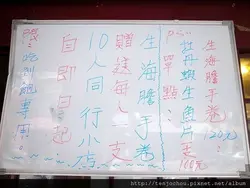 生海膽手卷
120元
P.S. 單點:
牡丹蝦生魚片
生海膽手卷
贈送每人一支
10人同行小店
自即日起
限:吃到飽專用!
http://tenjochou.pixnet.net/album